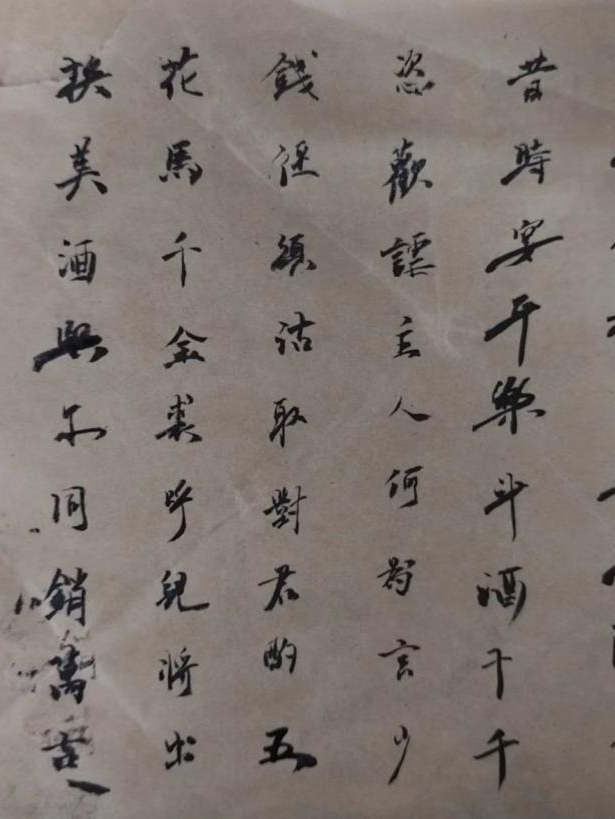 昔時宴平樂斗酒十千
恣歡謔主人何爲言少
錢徑須沽取對君酌五
花馬千金裘呼兒將出
换美酒與尓同銷萬古